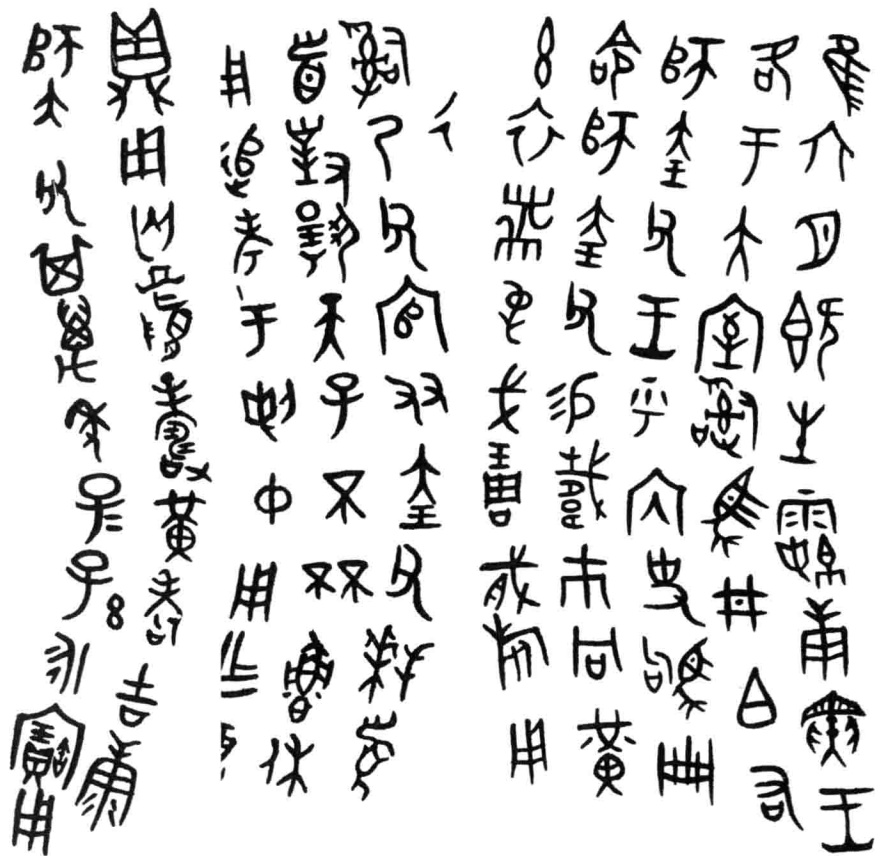 隹六月既生霸庚寅王
各于大室𤔲馬井白右
師𡘇父王乎內史駒冊
命師𡘇父易載市冋黃
玄衣黹屯戈琱胾旂用
𤔲乃父官友𡘇父拜𩒨
首對揚天子不杯魯休
用追考于剌中用乍
鼎用匄眉壽黃耇吉康
師𡘇父其萬年子孫永寶用